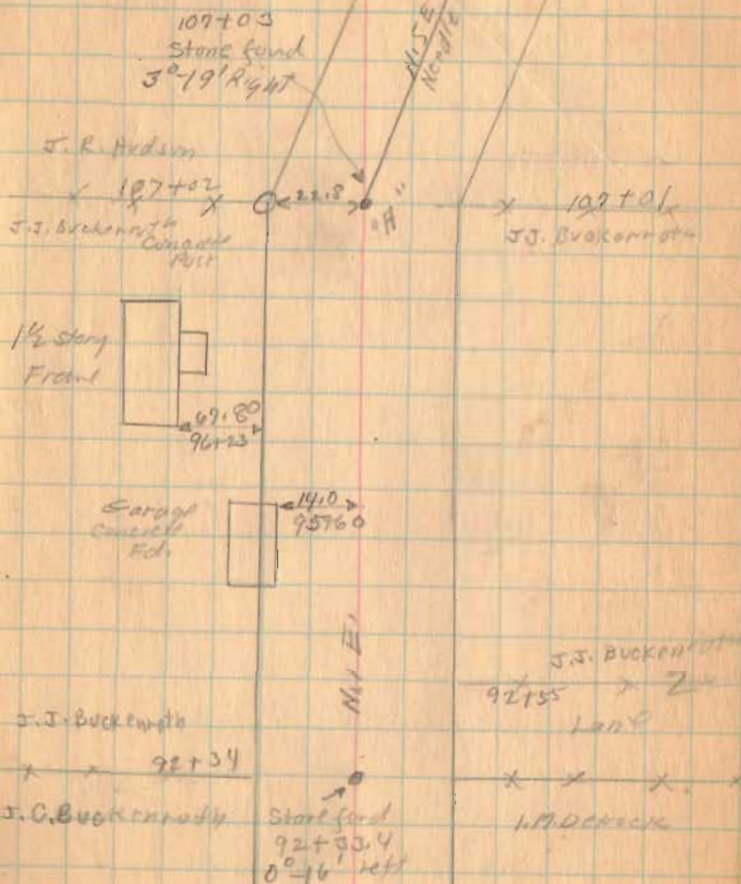 107+03
Stone fund
3°-19' Right
N.5 E
Needle
J. R. Hudson
107+02
22.8
"A"
107+01
J.J. Buckenroth
Concrete
Post
J.J. Buckenroth
1½ Story
Frame
67.80
96+23
14.0
95+60
Garage
Concrete
Fdn
N.1 E.
J.J. Buckenroth
92+55
Lane
J.J. Buckenroth
92+34
J.C. Buckenroth
Stone fond
92+33.4
0°-16' left